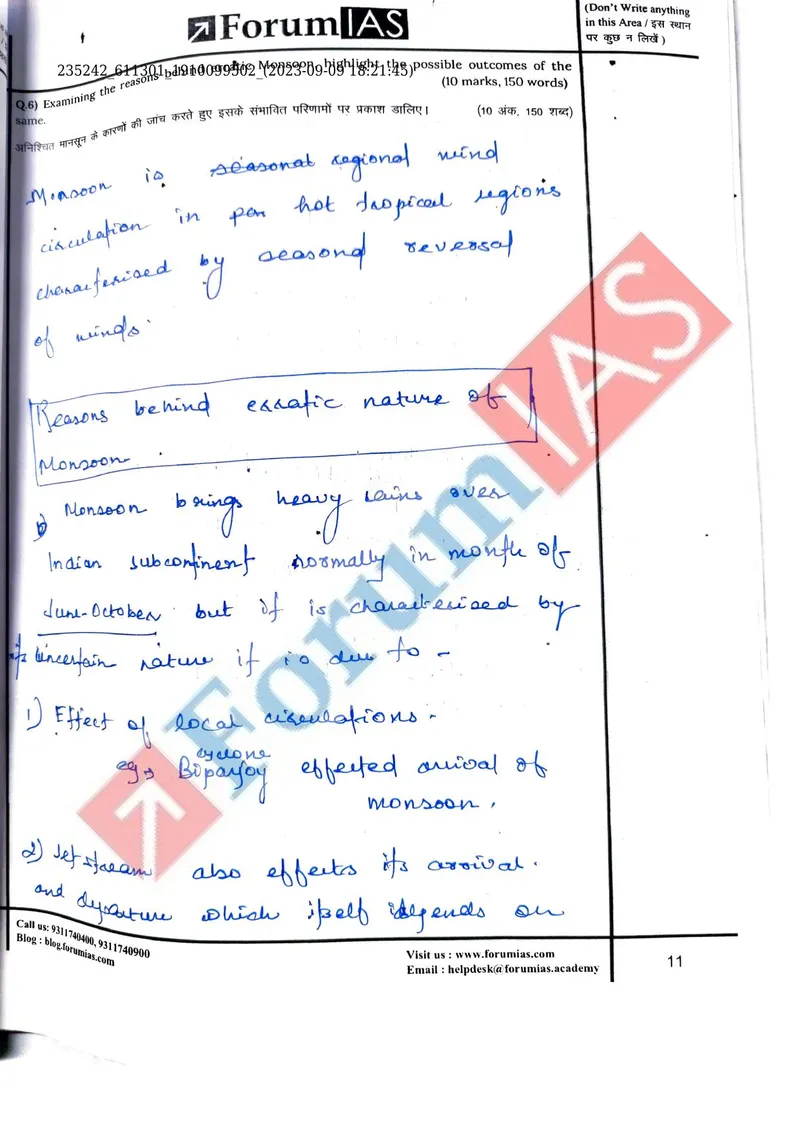 ForumIAS
(Don't Write anything
in this Area / इस स्थान
पर कुछ न लिखें )
235242_611301_1910099502_(2023-09-09 18:21:45)
Q.6) Examining the reasons behind erratic Monsoon, highlight the possible outcomes of the
same. (10 marks, 150 words)
अनिश्चित मानसून के कारणों की जांच करते हुए इसके संभावित परिणामों पर प्रकाश डालिए। (10 अंक, 150 शब्द)
Monsoon is seasonal regional wind
circulation in pan hot tropical regions
characterised by seasonal reversal
of winds.
Reasons behind erratic nature of
Monsoon
Monsoon brings heavy rains over
Indian subcontinent normally in month of
June-October but it is characterised by
its uncertain nature it is due to -
1) Effect of local circulations.
cyclone
eg, Biparjoy effected arrival of
monsoon.
2) Jet stream also effects its arrival.
and departure which itself depends on
Call us: 9311740400, 9311740900
Blog : blog.forumias.com
Visit us : www.forumias.com
Email : helpdesk@forumias.academy
11
ForumIAS